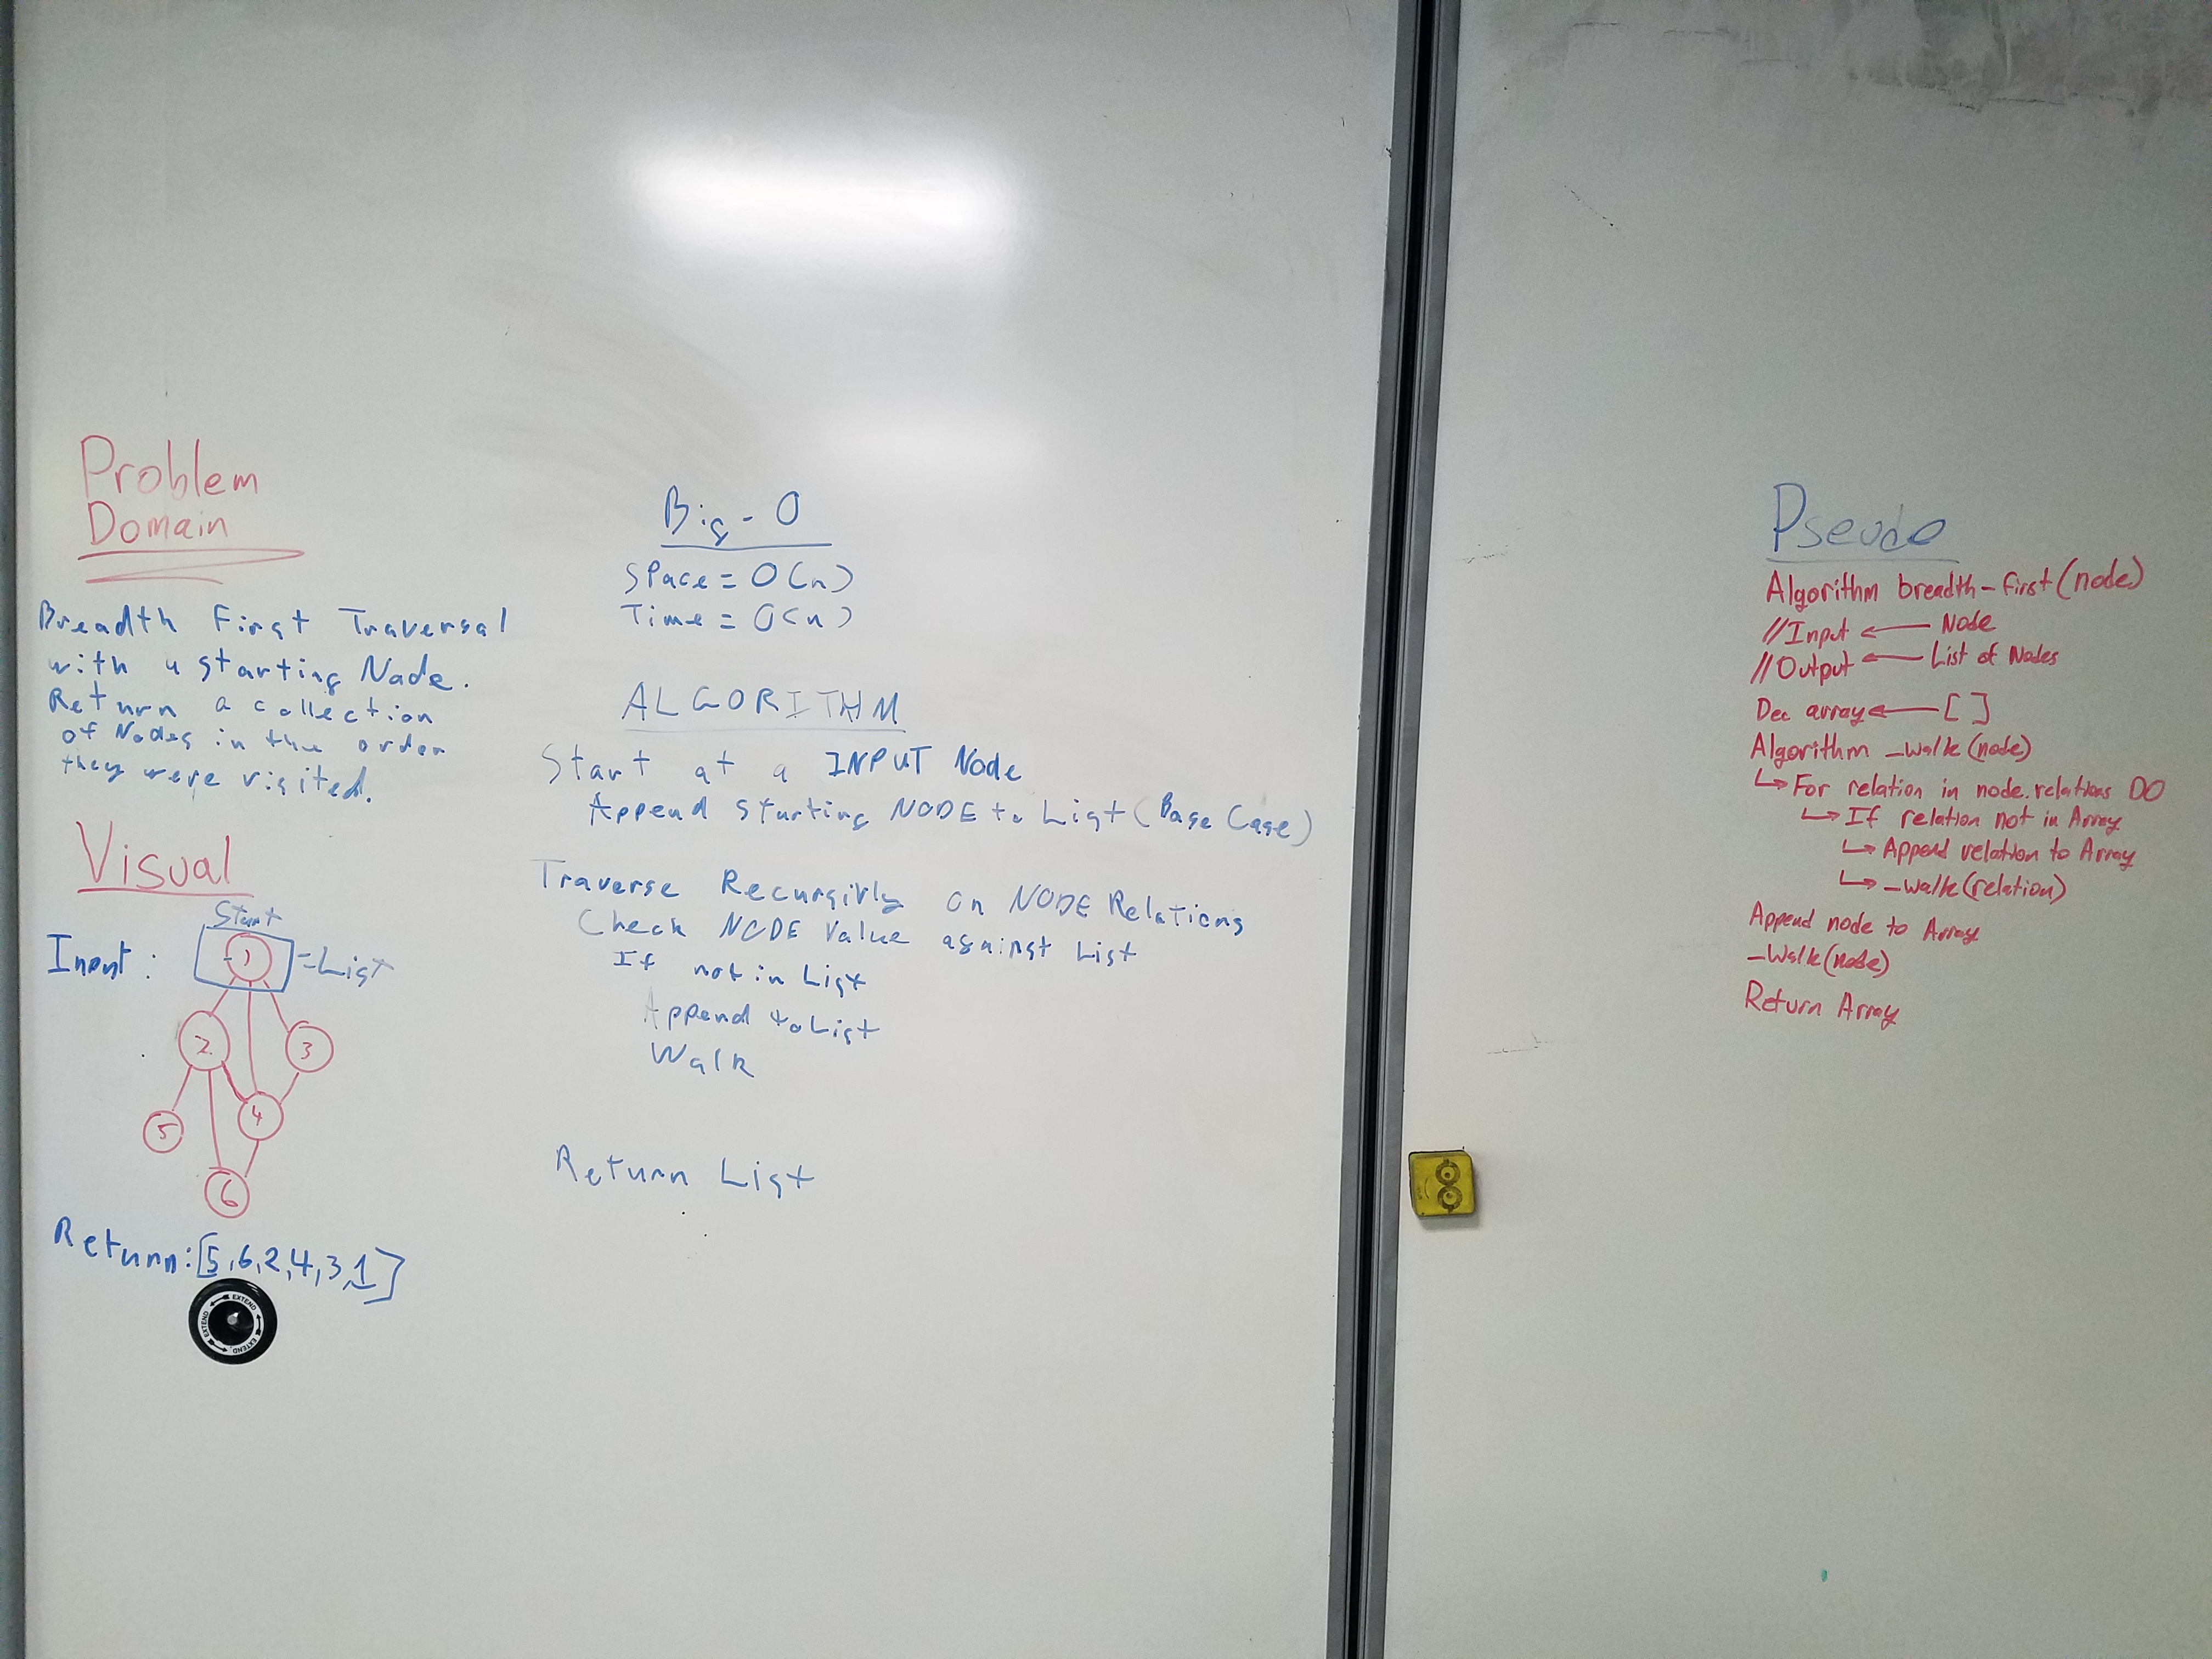 Problem
Domain
Breadth First Traversal
with a starting Node.
Return a collection
of Nodes in the order
they were visited.
Visual
Start
Input: 1 =List
2 3
5 4
6
Return: [5,6,2,4,3,1]
EXTEND EXTEND EXTEND EXTEND
Big-O
Space = O(n)
Time = O(n)
ALGORITHM
Start at a INPUT Node
Append starting NODE to List (Base Case)
Traverse Recursivly on NODE Relations
Check NODE Value against List
If not in List
Append to List
Walk
Return List
Pseudo
Algorithm breadth-first(node)
//Input ← Node
//Output ← List of Nodes
Dec array ← []
Algorithm _walk(node)
↳ For relation in node.relations DO
↳ If relation not in Array
↳ Append relation to Array
↳ _walk(relation)
Append node to Array
_Walk(node)
Return Array